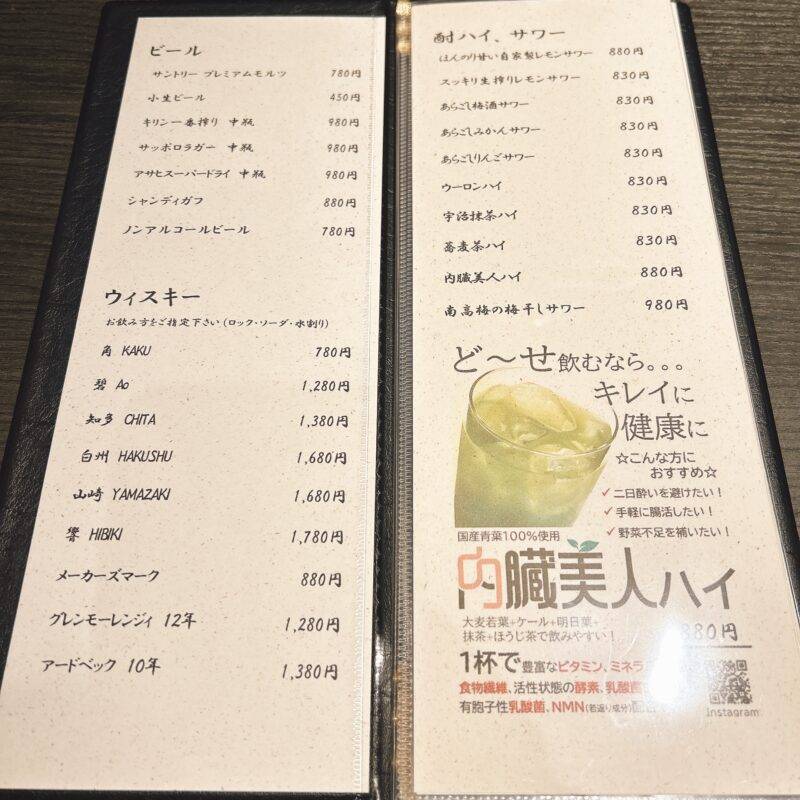 ビール
サントリー プレミアムモルツ 780円
小生ビール 450円
キリン一番搾り 中瓶 980円
サッポロラガー 中瓶 980円
アサヒスーパードライ 中瓶 980円
シャンディガフ 880円
ノンアルコールビール 780円
ウィスキー
お飲み方をご指定下さい(ロック・ソーダ・水割り)
角 KAKU 780円
碧 Ao 1,280円
知多 CHITA 1,380円
白州 HAKUSHU 1,680円
山崎 YAMAZAKI 1,680円
響 HIBIKI 1,780円
メーカーズマーク 880円
グレンモーレンジィ 12年 1,280円
アードベック 10年 1,380円
酎ハイ、サワー
ほんのり甘い自家製レモンサワー 880円
スッキリ生搾りレモンサワー 830円
あらごし梅酒サワー 830円
あらごしみかんサワー 830円
あらごしりんごサワー 830円
ウーロンハイ 830円
宇治抹茶ハイ 830円
蕎麦茶ハイ 830円
内臓美人ハイ 880円
南高梅の梅干しサワー 980円
ど〜せ飲むなら。。。
キレイに
健康に
☆こんな方に
おすすめ☆
✓二日酔いを避けたい!
✓手軽に腸活したい!
✓野菜不足を補いたい!
国産青葉100%使用
内臓美人ハイ
大麦若葉+ケール+明日葉+
抹茶+ほうじ茶で飲みやすい! 880円
1杯で豊富なビタミン、ミネラ
食物繊維、活性状態の酵素、乳酸菌
有胞子性乳酸菌、NMN(若返り成分)配合
Instagram